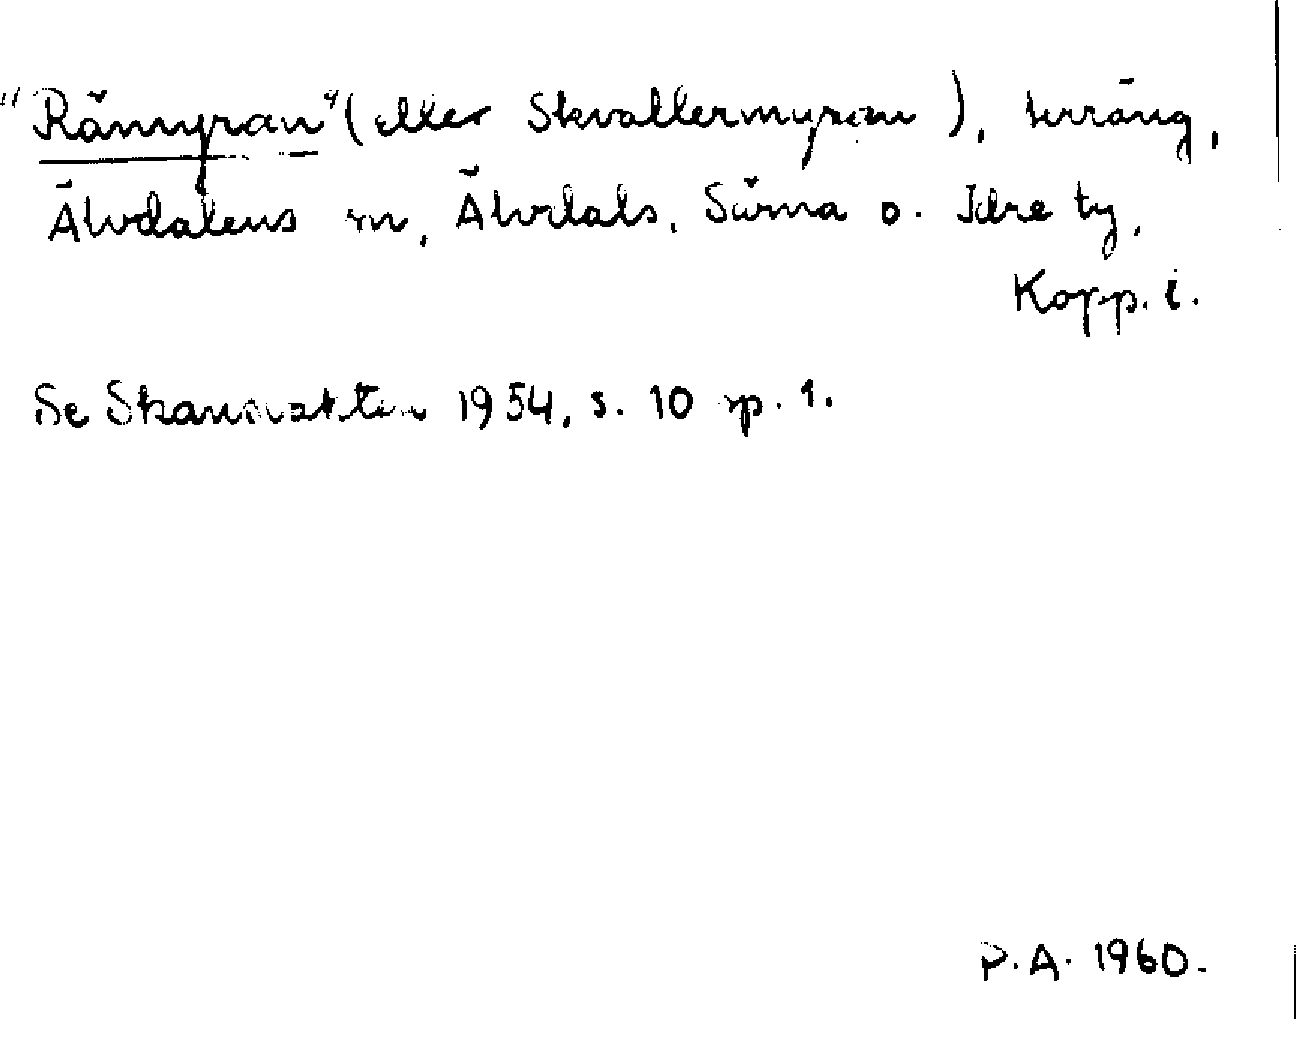 "Rämyran" (eller Skvallermyran), terräng,
Älvdalens sn, Älvdals, Särna o. Idre tg,
Kopp. l.
Se Skannaktten 1954, s. 10 sp. 1.
P.A. 1960.